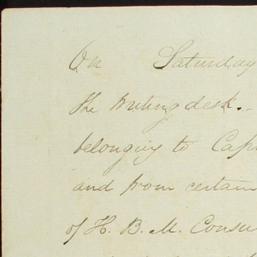 On Saturday
the writing desk.
belonging to Cap
and from certain
of H. B. M. Consu